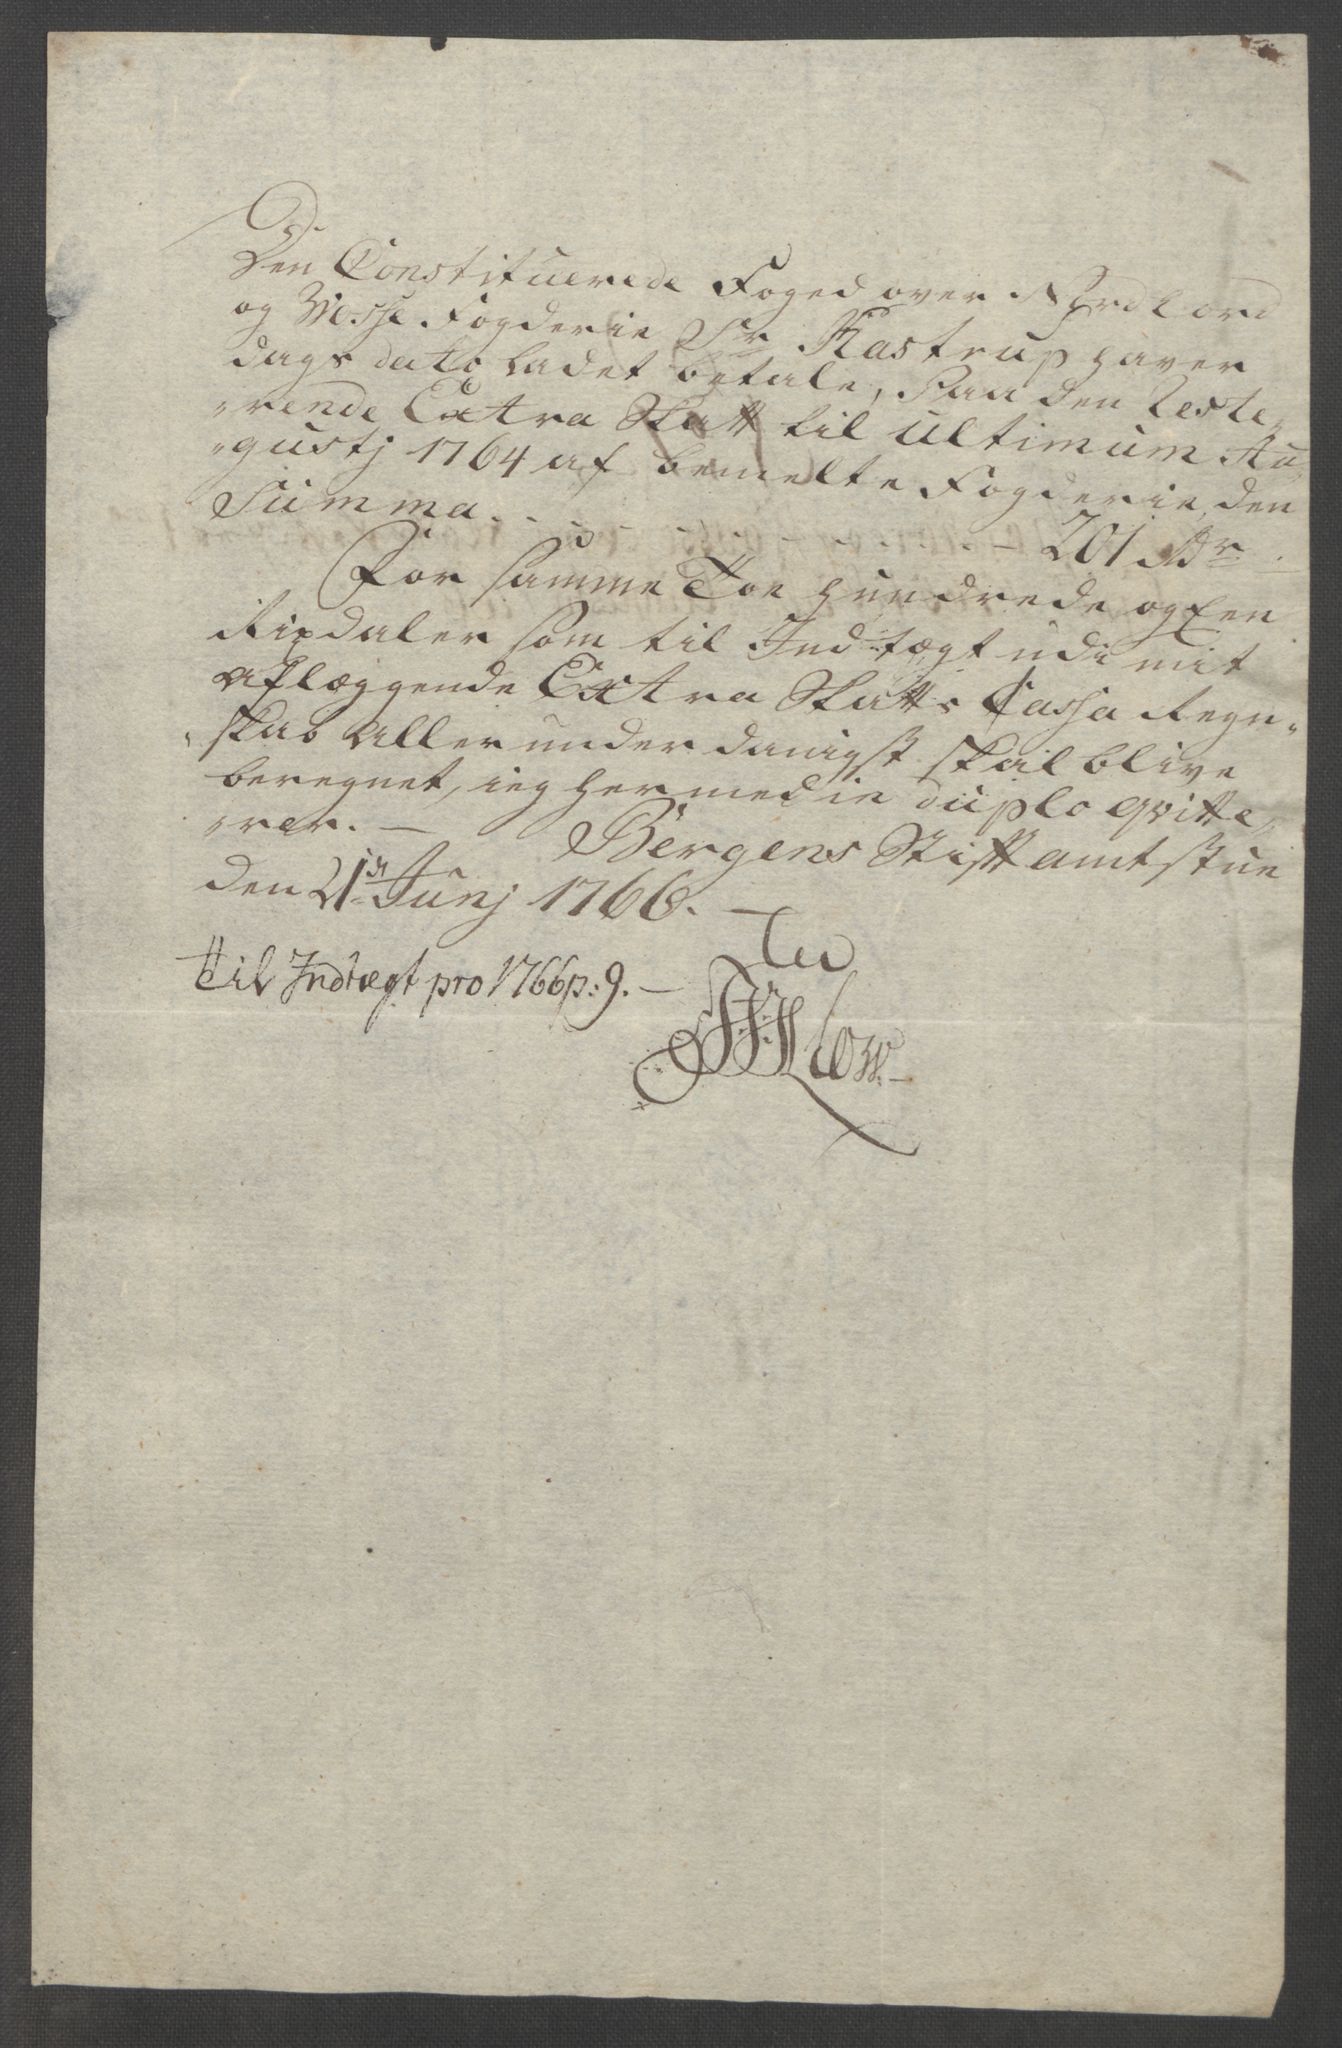 Den Constituerede Foged over Nordhord
og Vosse Fogderie Sr. Kastrup haver
dags dato ladet betale, Paa den Reste„
„rende Extra Skatt til ultimum Au„
„gustj 1764 af bemelte Fogderie, den
Summa . . . . . . . . . . . . 201 Rdr
For samme Toe hundrede og Een
Rixdaler som til Indtægt udi mit
aflæggende Extra Skatts Cassa Regn„
„skab allerunderdanigst skal blive
beregnet, ieg hermed in duplo qvitte„
„rer. — Bergens Stiftamtstue
den 21de Junj 1766. —
Til Indtægt pro 1766 p: 9. —